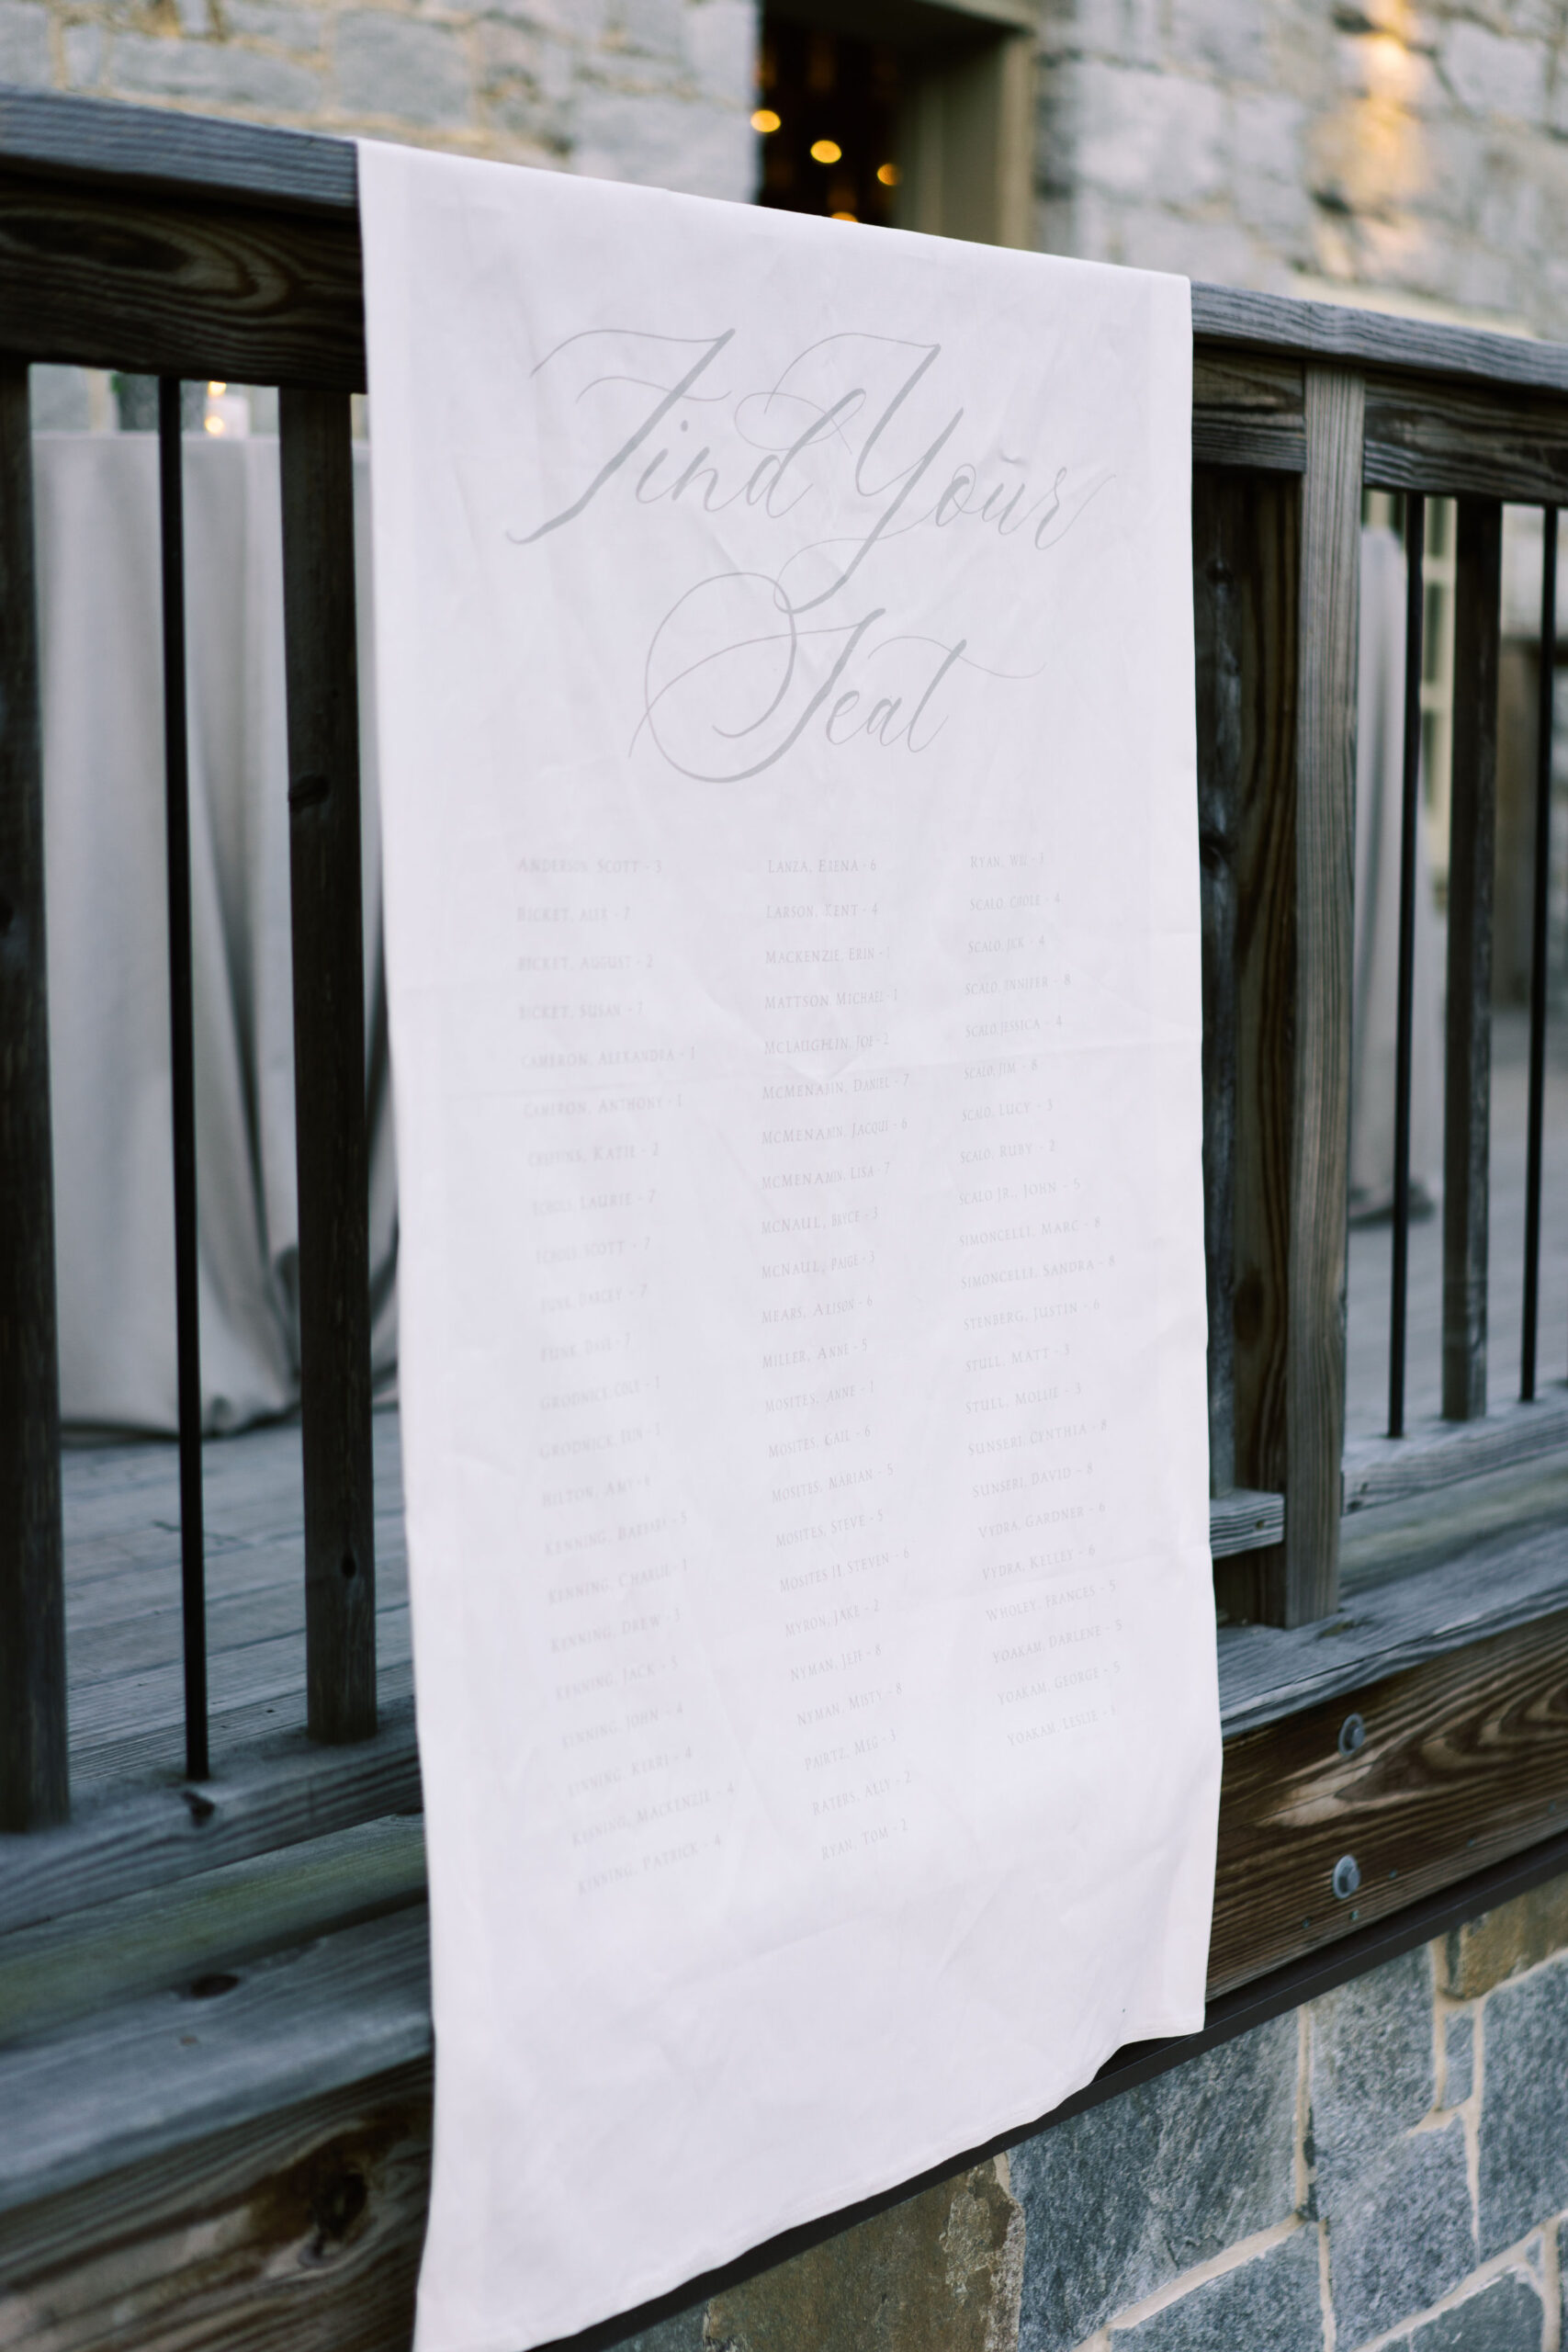 Find Your
Seat
ANDERSON, SCOTT - 3
BICKET, ALEX - 7
BICKET, AUGUST - 2
BICKET, SUSAN - 7
CAMERON, ALEXANDRA - 1
CAMERON, ANTHONY - 1
KATIE - 2
LAURIE - 7
SCOTT - 7
DARCEY - 7
- 7
GRODNICK, COLE - 1
GRODNICK, - 1
HILTON, AMY -
KENNING, - 5
KENNING, CHARLIE - 1
KENNING, DREW - 3
KENNING, JACK - 5
KENNING, JOHN - 4
KENNING, KERRI - 4
KENNING, MACKENZIE - 4
KENNING, PATRICK - 4
LANZA, - 6
LARSON, KENT - 4
MACKENZIE, ERIN - 1
MATTSON MICHAEL - 1
MCLAUGHLIN, JOE - 2
MCMENAMIN, DANIEL - 7
MCMENAMIN, JACQUI - 6
MCMENAMIN, LISA - 7
MCNAUL, BRYCE - 3
MCNAUL, PAIGE - 3
MEARS, ALISON - 6
MILLER, ANNE - 5
MOSITES, ANNE - 1
MOSITES, GAIL - 6
MOSITES, MARIAN - 5
MOSITES, STEVE - 5
MOSITES II, STEVEN - 6
MYRON, JAKE - 2
NYMAN, JEFF - 8
NYMAN, MISTY - 8
PAIRTZ, MEG - 3
RATERS, ALLY - 2
RYAN, TOM - 2
RYAN, WIL -
SCALO, CHOLE - 4
SCALO, JCK - 4
SCALO, JENNIFER - 8
SCALO JESSICA - 4
SCALO, JIM - 8
SCALO, LUCY - 3
SCALO, RUBY - 2
SCALO JR., JOHN - 5
SIMONCELLI, MARC - 8
SIMONCELLI, SANDRA - 8
STENBERG, JUSTIN - 6
STULL, MATT - 3
STULL, MOLLIE - 3
SUNSERI, CYNTHIA - 8
SUNSERI, DAVID - 8
VYDRA, GARDNER - 6
VYDRA, KELLEY - 6
WHOLEY, FRANCES - 5
YOAKAM, DARLENE - 5
YOAKAM, GEORGE - 5
YOAKAM, LESLIE -